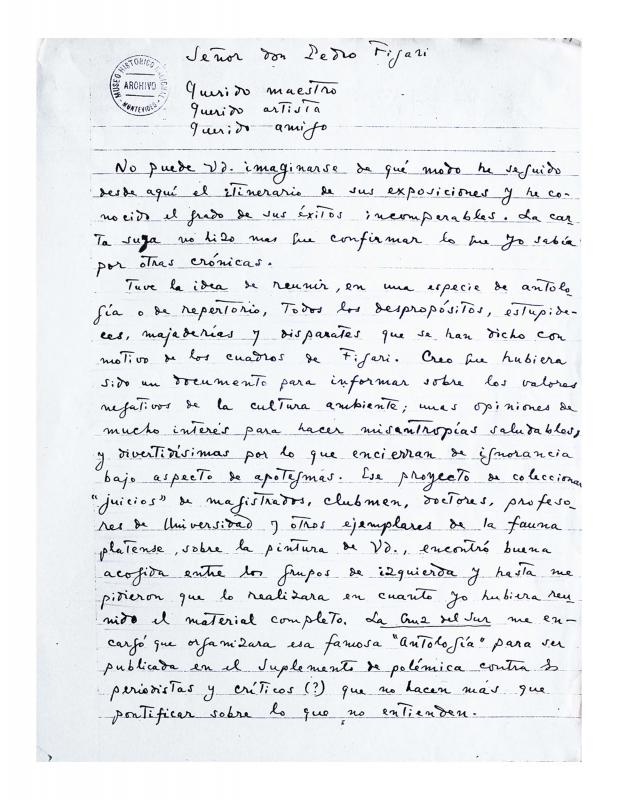 Señor don Pedro Figari
MUSEO HISTORICO NACIONAL
ARCHIVO
MONTEVIDEO
Querido maestro
Querido artista
Querido amigo
No puede Vd. imaginarse de qué modo he seguido
desde aquí el itinerario de sus exposiciones y he co-
nocido el grado de sus éxitos incomparables. La car-
ta suya no hizo mas que confirmar lo que yo sabía
por otras crónicas.
Tuve la idea de reunir, en una especie de antolo-
gía o de repertorio, todos los despropósitos, estupide-
ces, majaderías y disparates que se han dicho con
motivo de los cuadros de Figari. Creo que hubiera
sido un documento para informar sobre los valores
negativos de la cultura ambiente; unas opiniones de
mucho interés para hacer misantropías saludables,
y divertidísimas por lo que encierran de ignorancia
bajo aspecto de apotegmas. Ese proyecto de coleccionar
"juicios" de magistrados, clubmen, doctores, profeso-
res de Universidad y otros ejemplares de la fauna
platense, sobre la pintura de Vd., encontró buena
acogida entre los grupos de izquierda y hasta me
pidieron que lo realizara en cuanto yo hubiera reu-
nido el material completo. La Cruz del Sur me en-
cargó que organizara esa famosa "Antología" para ser
publicada en el suplemento de polémica contra los
periodistas y críticos (?) que no hacen más que
pontificar sobre lo que no entienden.